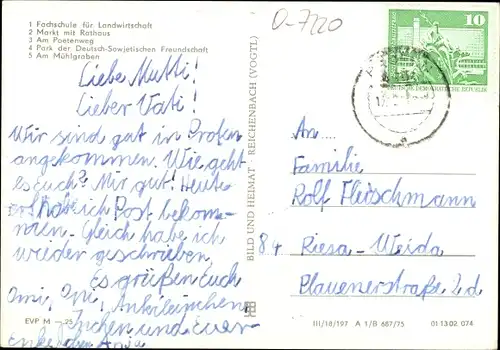 1 Fachschule für Landwirtschaft
2 Markt mit Rathaus
3 Am Poetenweg
4 Park der Deutsch-Sowjetischen Freundschaft
5 Am Mühlgraben
Liebe Mutti!
Lieber Vati!
Wir sind gut in Profen
angekommen. Wie geht
es euch? Mir gut! Heute
habe ich Post bekom-
men. Gleich habe ich
wieder geschrieben.
Es grüßen euch
Omi, Opi,
und euer
EVP M —,25
BILD UND HEIMAT · REICHENBACH (VOGTL)
O-7220
10
DEUTSCHE DEMOKRATISCHE REPUBLIK
An...
Familie
Rolf Fleischmann
84 Riesa-Weida
Plauenerstraße 2d
III/18/197 A 1/B 687/75 01 13 02 074